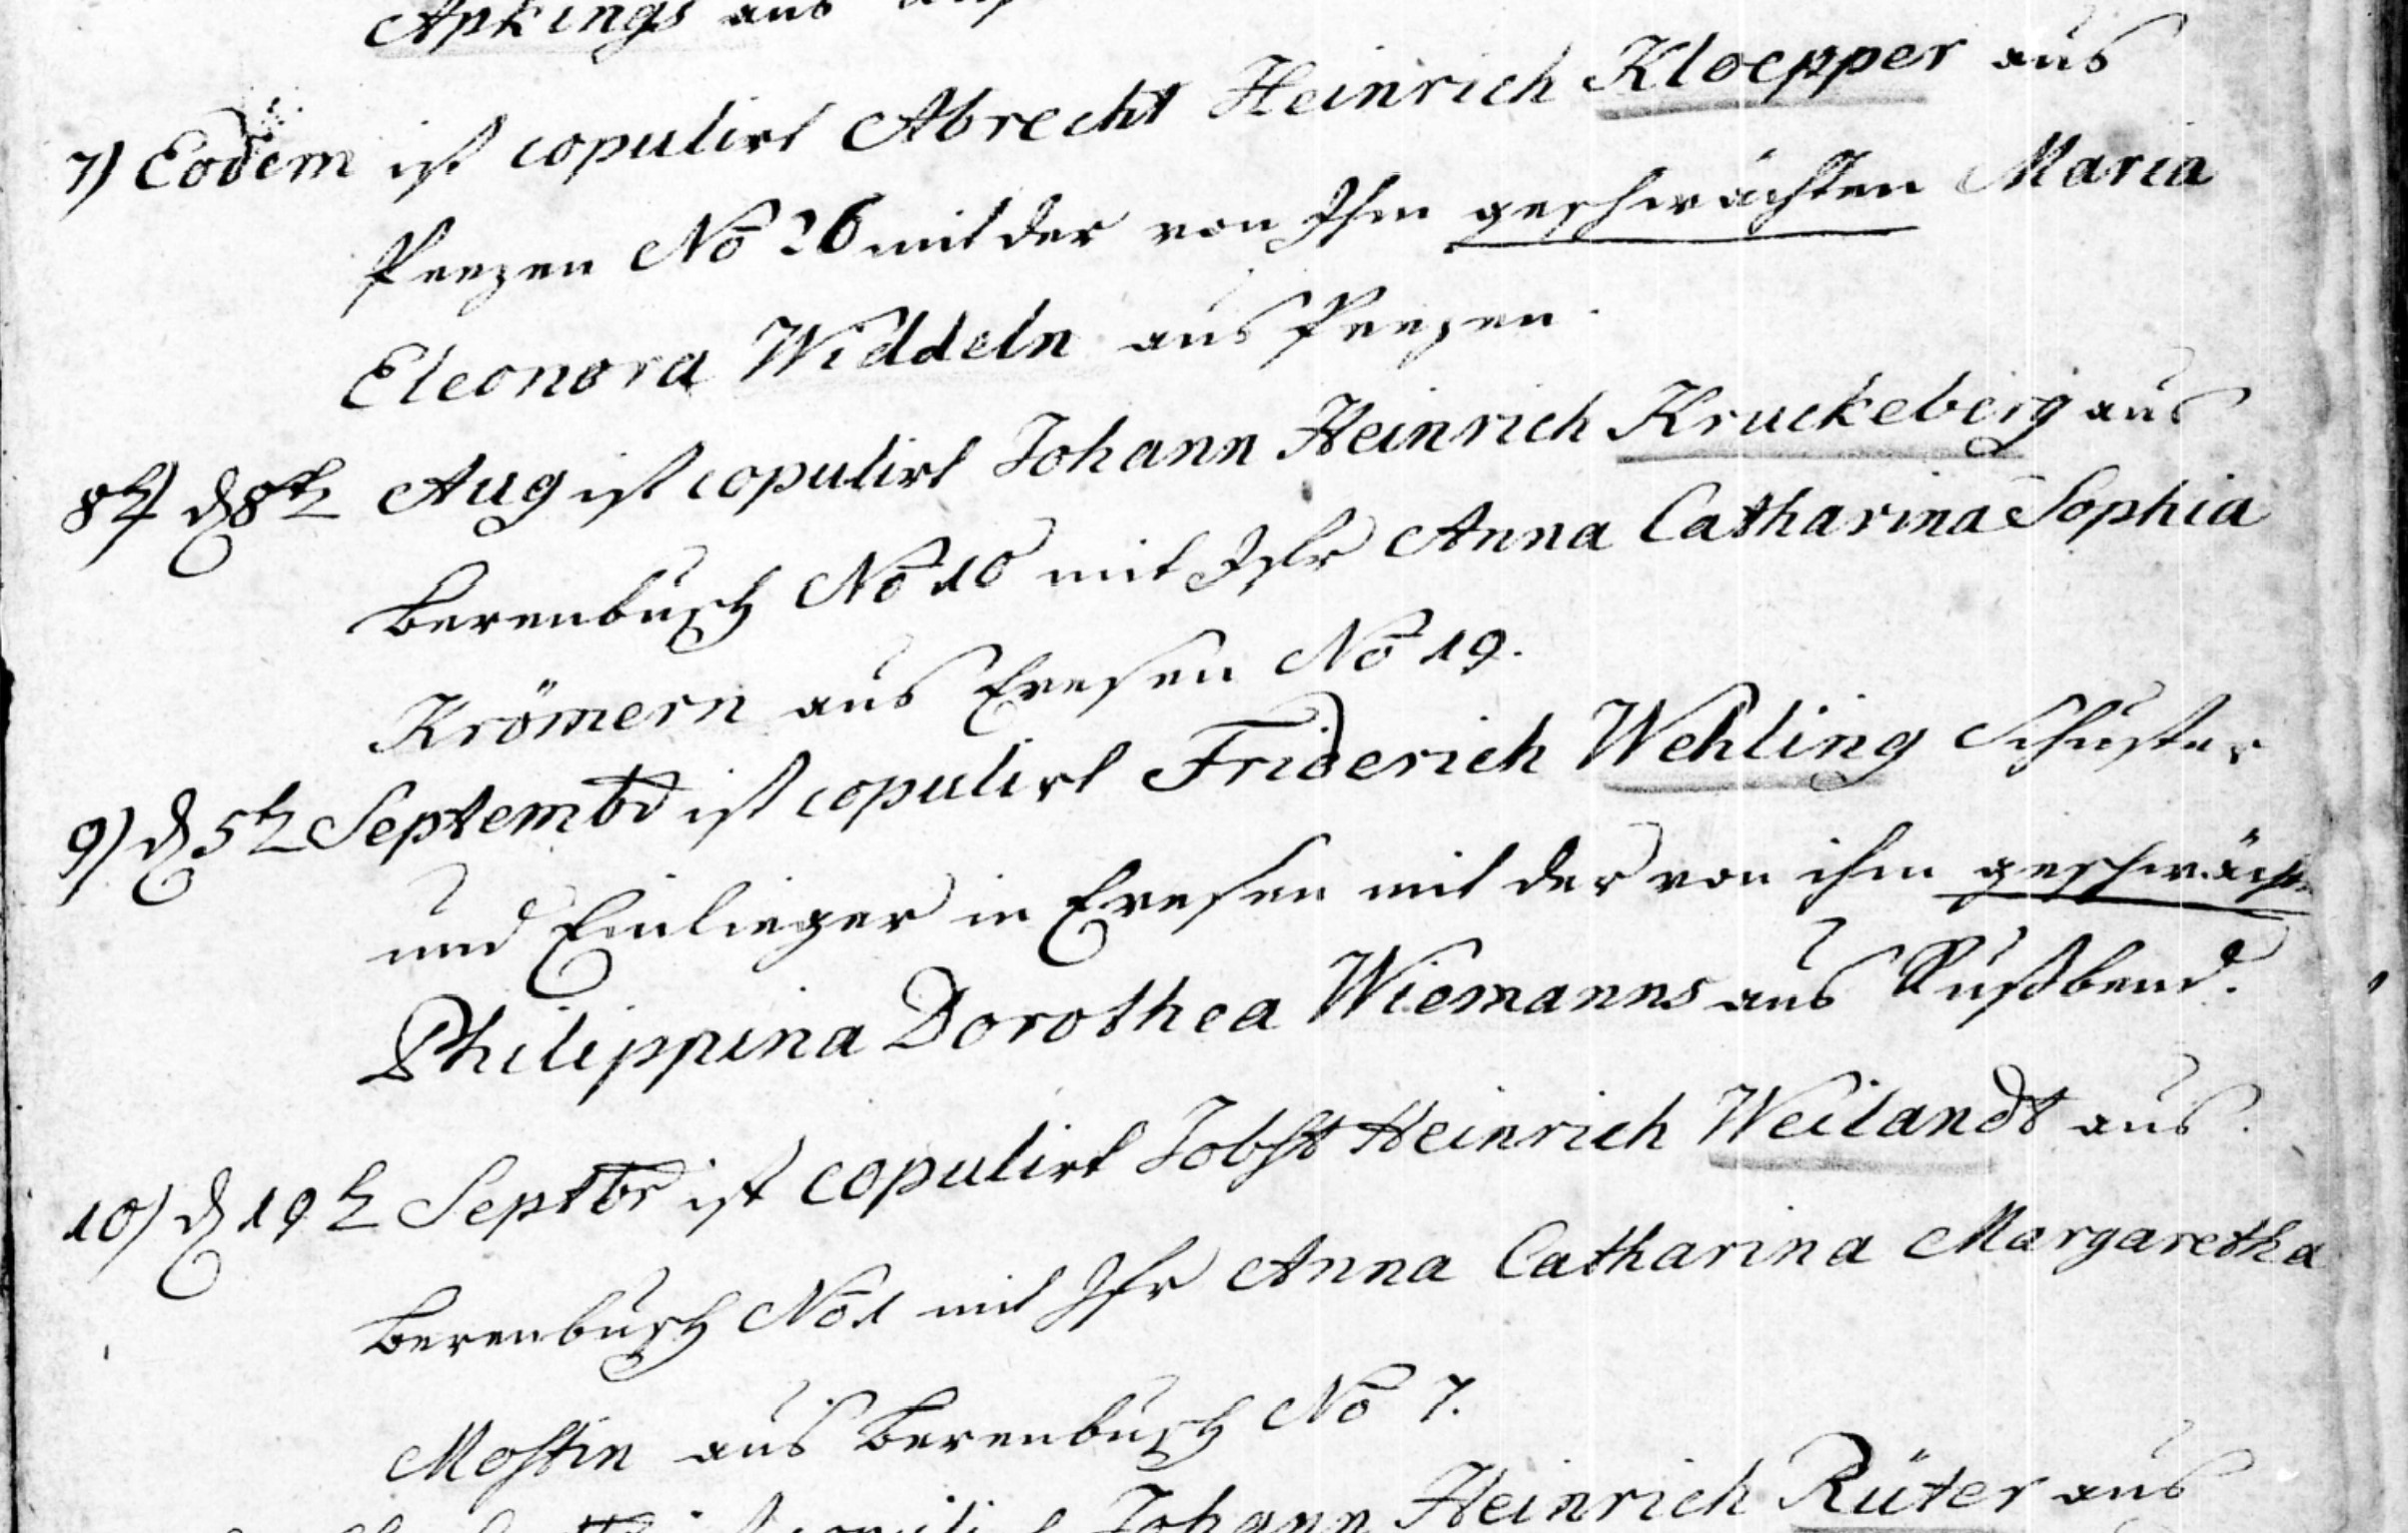 Apkings aus
7) Eodem ist copulirt Abrecht Heinrich Kloepper aus
Peezen No 26 mit der von Ihm geschwächten Maria
Eleonora Widdeln aus Peezen.
8) d 8t Aug ist copulirt Johann Heinrich Kruckeberg aus
Berenbusch No 10 mit Jfr Anna Catharina Sophia
Krömern aus Evesen No 19.
9) d 5t Septembr ist copulirt Friderich Wehling Schuster
und Einlieger in Evesen mit der von ihm geschwächt
Philippina Dorothea Wiemanns aus Rußbend.
10) d 19t Septbr ist copulirt Jobst Heinrich Weilandt aus
Berenbusch No 1 mit Jfr Anna Catharina Margaretha
Mostin aus Berenbusch No 7.
ist copulirt Johann Heinrich Rüter aus